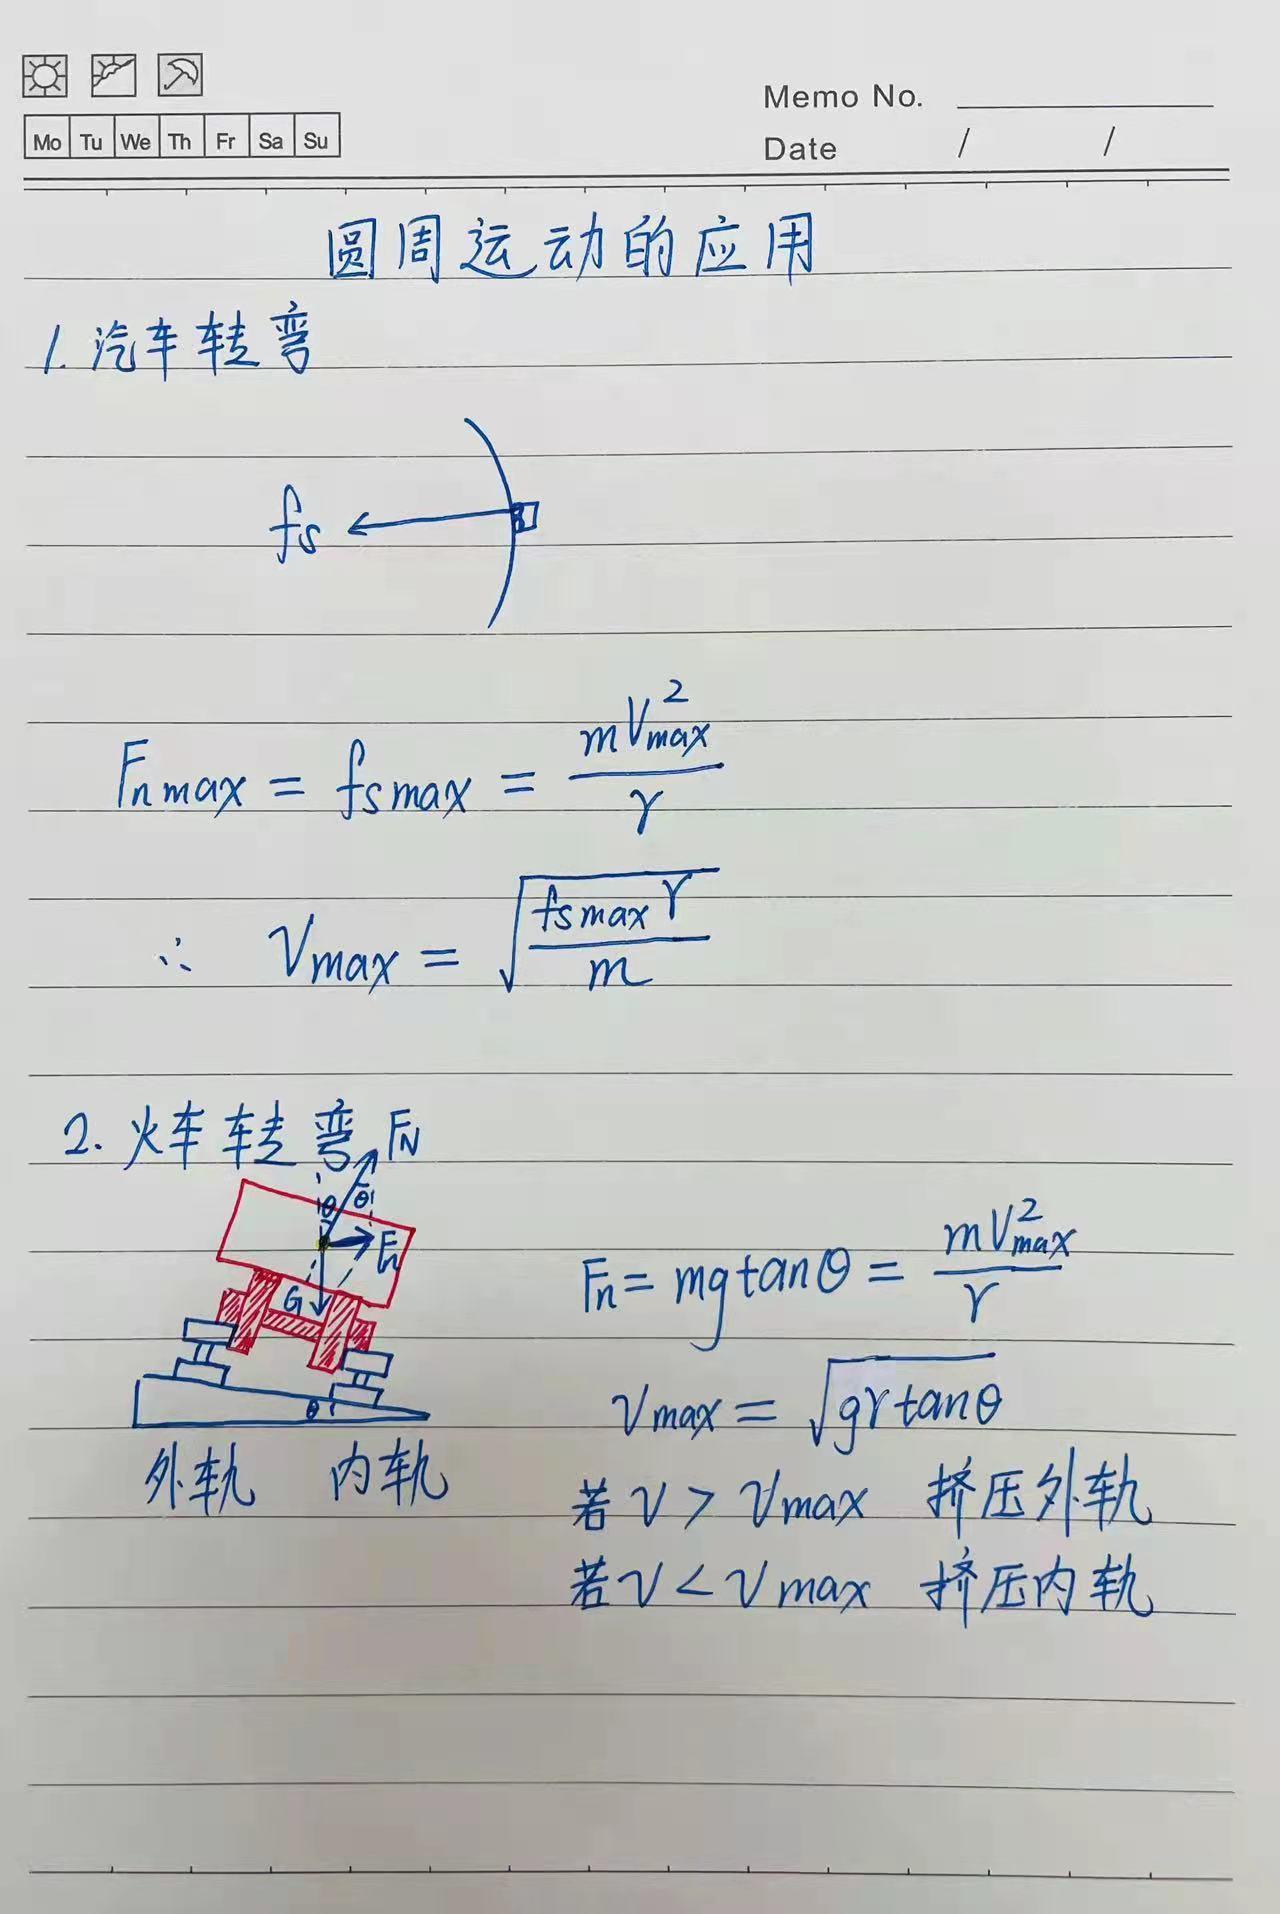 Memo No.
Mo Tu We Th Fr Sa Su
Date / /
圆周运动的应用
1. 汽车转弯
fs
Fnmax = fsmax = mVmax² / r
∴ Vmax = √(fsmax r / m)
2. 火车转弯 FN
θ θ
Fn
G
Fn = mg tanθ = mVmax² / r
θ
vmax = √(gr tanθ)
外轨 内轨
若 v > vmax 挤压外轨
若 v < vmax 挤压内轨